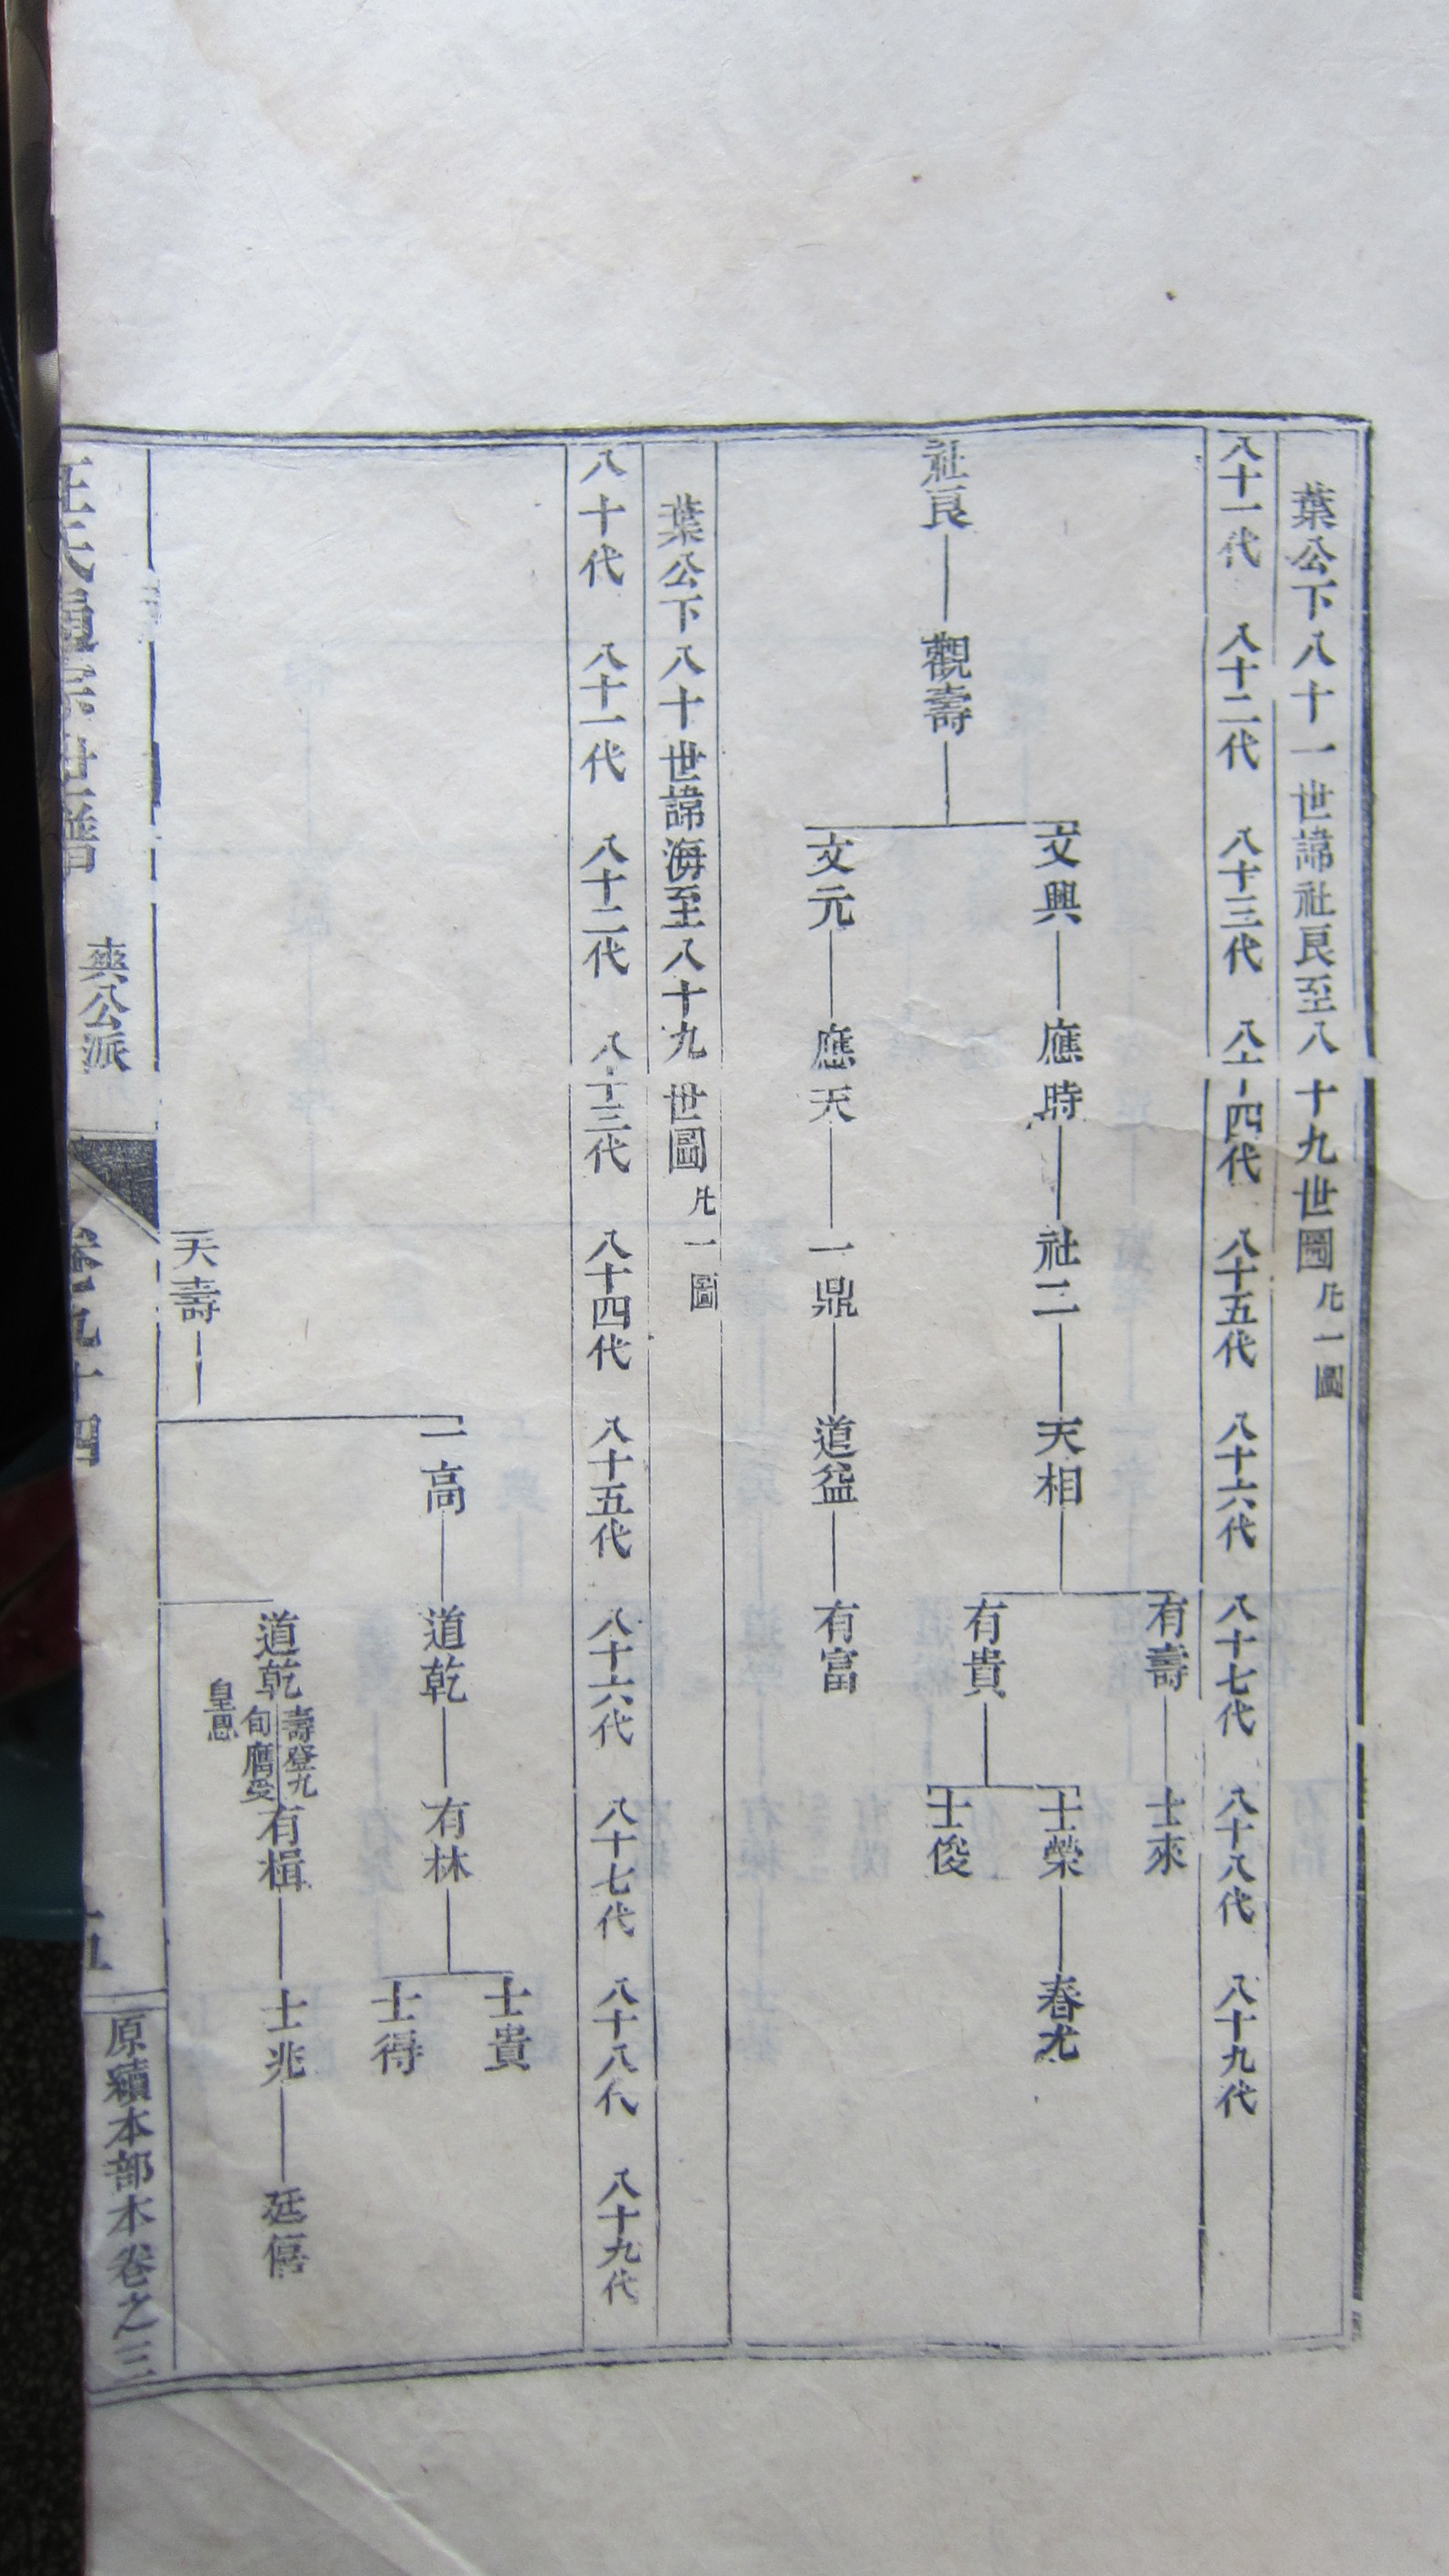 葉公下八十一世諱社良至八十九世圖 凡一圖
八十一代 八十二代 八十三代 八十四代 八十五代 八十六代 八十七代 八十八代 八十九代
有壽 士來
文興 應時 社二 天相
士榮 春尤
有貴
社良 觀壽
士俊
文元 應天 一鼎 道益 有富
葉公下八十世諱海至八十九世圖 凡一圖
八十代 八十一代 八十二代 八十三代 八十四代 八十五代 八十六代 八十七代 八十八代 八十九代
士貴
一高 道乾 有林
士得
道乾 壽登九旬膺受皇恩 有楫 士兆 廷僖
天壽
夾公派
卷九十四
五
原續本部本卷之三